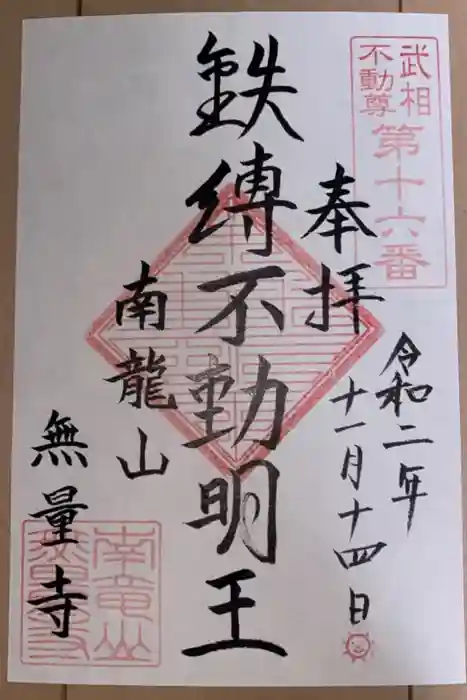 武相
不動尊
第十六番
奉拝
令和二年
十一月十四日
鉄縛不動明王
南龍山
無量寺
南竜山